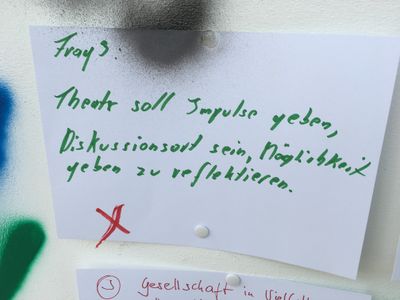 Frag 3
Theatr soll Impulse geben,
Diskussionsort sein, Möglichkeit
geben zu reflektieren.
X
3 Gesellschaft in